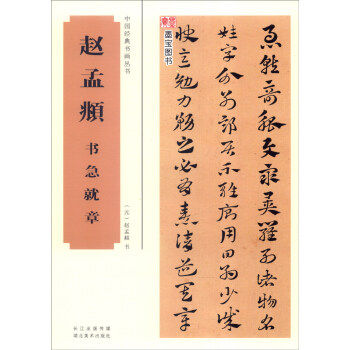 中国经典书画丛书
赵孟頫
书急就章
（元）赵孟頫 书
长江出版传媒
湖北美术出版社
墨宝图书
急就奇觚與衆異羅列諸物名
姓字分別部居不雜廁用日約少誠
快意勉力務之必有憙請道其章